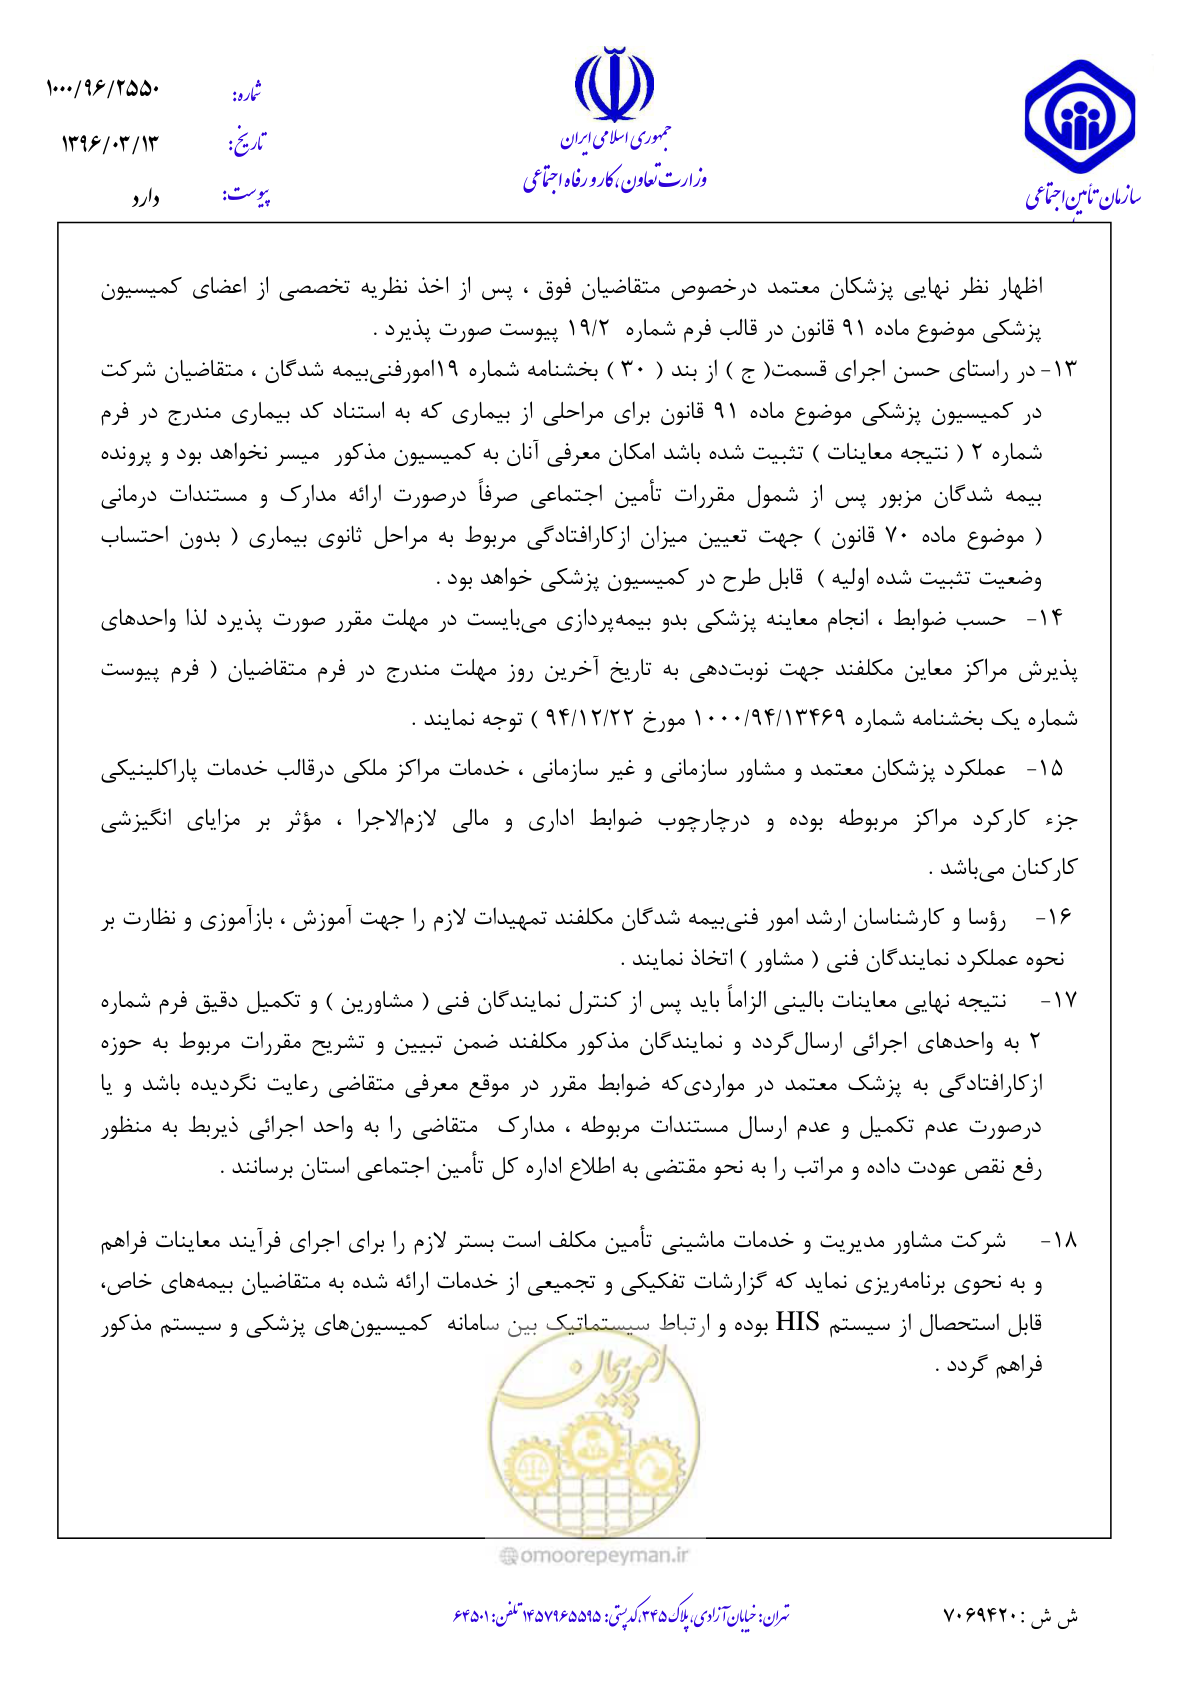 شماره: ۱۰۰۰/۹۶/۲۵۵۰
تاریخ: ۱۳۹۶/۰۳/۱۳
پیوست: دارد
جمهوری اسلامی ایران
وزارت تعاون، کار و رفاه اجتماعی
سازمان تأمین اجتماعی
اظهار نظر نهایی پزشکان معتمد درخصوص متقاضیان فوق ، پس از اخذ نظریه تخصصی از اعضای کمیسیون
پزشکی موضوع ماده ۹۱ قانون در قالب فرم شماره ۱۹/۲ پیوست صورت پذیرد .
۱۳- در راستای حسن اجرای قسمت( ج ) از بند ( ۳۰ ) بخشنامه شماره ۱۹امورفنی‌بیمه شدگان ، متقاضیان شرکت
در کمیسیون پزشکی موضوع ماده ۹۱ قانون برای مراحلی از بیماری که به استناد کد بیماری مندرج در فرم
شماره ۲ ( نتیجه معاینات ) تثبیت شده باشد امکان معرفی آنان به کمیسیون مذکور میسر نخواهد بود و پرونده
بیمه شدگان مزبور پس از شمول مقررات تأمین اجتماعی صرفاً درصورت ارائه مدارک و مستندات درمانی
( موضوع ماده ۷۰ قانون ) جهت تعیین میزان ازکارافتادگی مربوط به مراحل ثانوی بیماری ( بدون احتساب
وضعیت تثبیت شده اولیه ) قابل طرح در کمیسیون پزشکی خواهد بود .
۱۴- حسب ضوابط ، انجام معاینه پزشکی بدو بیمه‌پردازی می‌بایست در مهلت مقرر صورت پذیرد لذا واحدهای
پذیرش مراکز معاین مکلفند جهت نوبت‌دهی به تاریخ آخرین روز مهلت مندرج در فرم متقاضیان ( فرم پیوست
شماره یک بخشنامه شماره ۱۰۰۰/۹۴/۱۳۴۶۹ مورخ ۹۴/۱۲/۲۲ ) توجه نمایند .
۱۵- عملکرد پزشکان معتمد و مشاور سازمانی و غیر سازمانی ، خدمات مراکز ملکی درقالب خدمات پاراکلینیکی
جزء کارکرد مراکز مربوطه بوده و درچارچوب ضوابط اداری و مالی لازم‌الاجرا ، مؤثر بر مزایای انگیزشی
کارکنان می‌باشد .
۱۶- رؤسا و کارشناسان ارشد امور فنی‌بیمه شدگان مکلفند تمهیدات لازم را جهت آموزش ، بازآموزی و نظارت بر
نحوه عملکرد نمایندگان فنی ( مشاور ) اتخاذ نمایند .
۱۷- نتیجه نهایی معاینات بالینی الزاماً باید پس از کنترل نمایندگان فنی ( مشاورین ) و تکمیل دقیق فرم شماره
۲ به واحدهای اجرائی ارسال‌گردد و نمایندگان مذکور مکلفند ضمن تبیین و تشریح مقررات مربوط به حوزه
ازکارافتادگی به پزشک معتمد در مواردی‌که ضوابط مقرر در موقع معرفی متقاضی رعایت نگردیده باشد و یا
درصورت عدم تکمیل و عدم ارسال مستندات مربوطه ، مدارک متقاضی را به واحد اجرائی ذیربط به منظور
رفع نقص عودت داده و مراتب را به نحو مقتضی به اطلاع اداره کل تأمین اجتماعی استان برسانند .
۱۸- شرکت مشاور مدیریت و خدمات ماشینی تأمین مکلف است بستر لازم را برای اجرای فرآیند معاینات فراهم
و به نحوی برنامه‌ریزی نماید که گزارشات تفکیکی و تجمیعی از خدمات ارائه شده به متقاضیان بیمه‌های خاص،
قابل استحصال از سیستم HIS بوده و ارتباط سیستماتیک بین سامانه کمیسیون‌های پزشکی و سیستم مذکور
فراهم گردد .
امور پیمان
@omoorepeyman.ir
ش ش : ۷۰۶۹۴۲۰
تهران: خیابان آزادی، پلاک ۳۴۵، کدپستی: ۱۴۵۷۹۶۵۵۹۵ تلفن: ۶۴۵۰۱